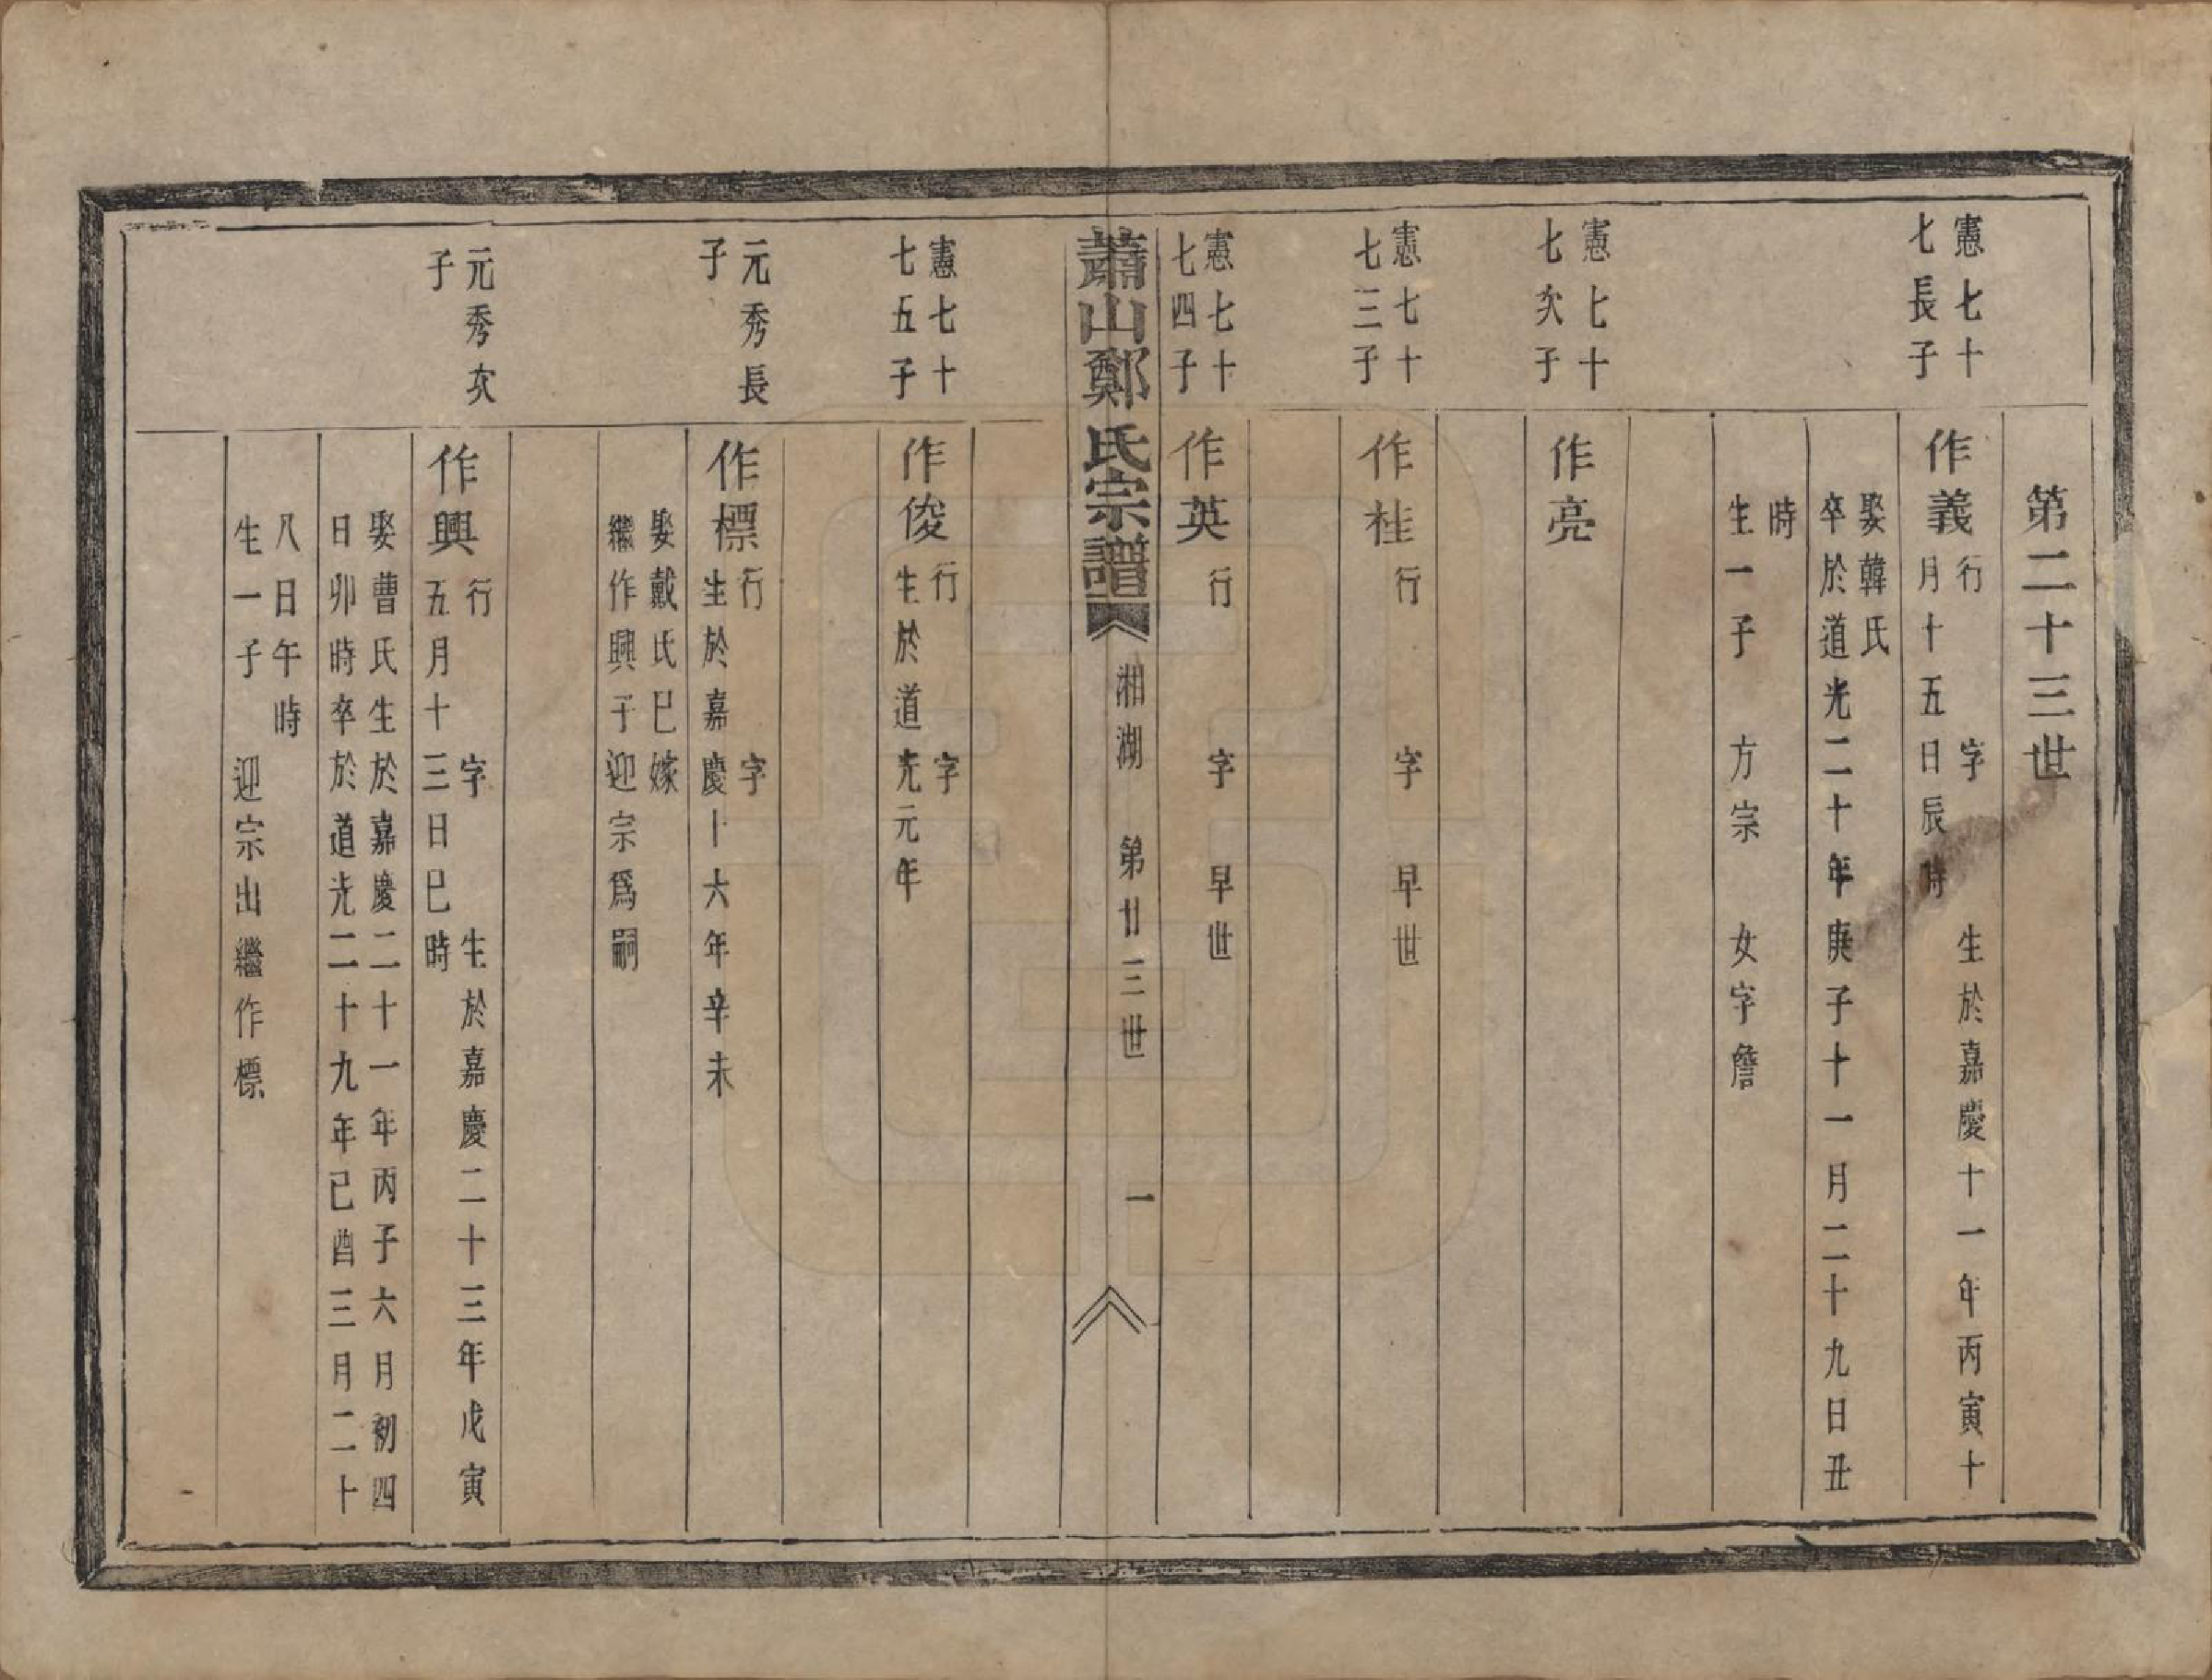 第二十三世
憲七十
七長子
作義
行 字 生於嘉慶十一年丙寅十
月十五日辰時
娶韓氏
卒於道光二十年庚子十一月二十九日丑
時
生一子 方宗 女字詹
憲七十
七次子
作亮
憲七十
七三子
作桂
行 字 早世
憲七十
七四子
作英
行 字 早世
蕭山鄭氏宗譜 湘湖 第廿三世 一
憲七十
七五子
作俊
行 字
生於道光元年
元秀長
子
作標
行 字
生於嘉慶十六年辛未
娶戴氏已嫁
繼作興子迎宗爲嗣
元秀次
子
作興
行 字 生於嘉慶二十三年戊寅
五月十三日巳時
娶曹氏生於嘉慶二十一年丙子六月初四
日卯時卒於道光二十九年己酉三月二十
八日午時
生一子 迎宗出繼作標